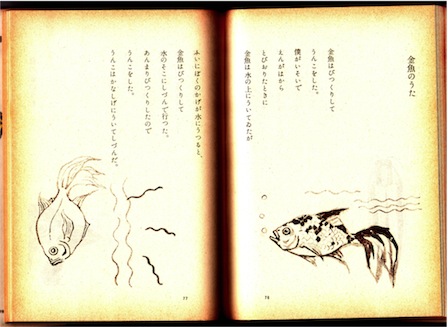 金魚のうた
金魚は水の上にういてゐたが
とびおりたときに
えんがはから
僕がいそいで
うんこをした。
金魚はびつくりして
76
ふいにぼくのかげが水にうつると、
金魚はびつくりして
水のそこにしづんで行つた。
あんまりびつくりしたので
うんこをした。
うんこはかなしげにういてしづんだ。
77